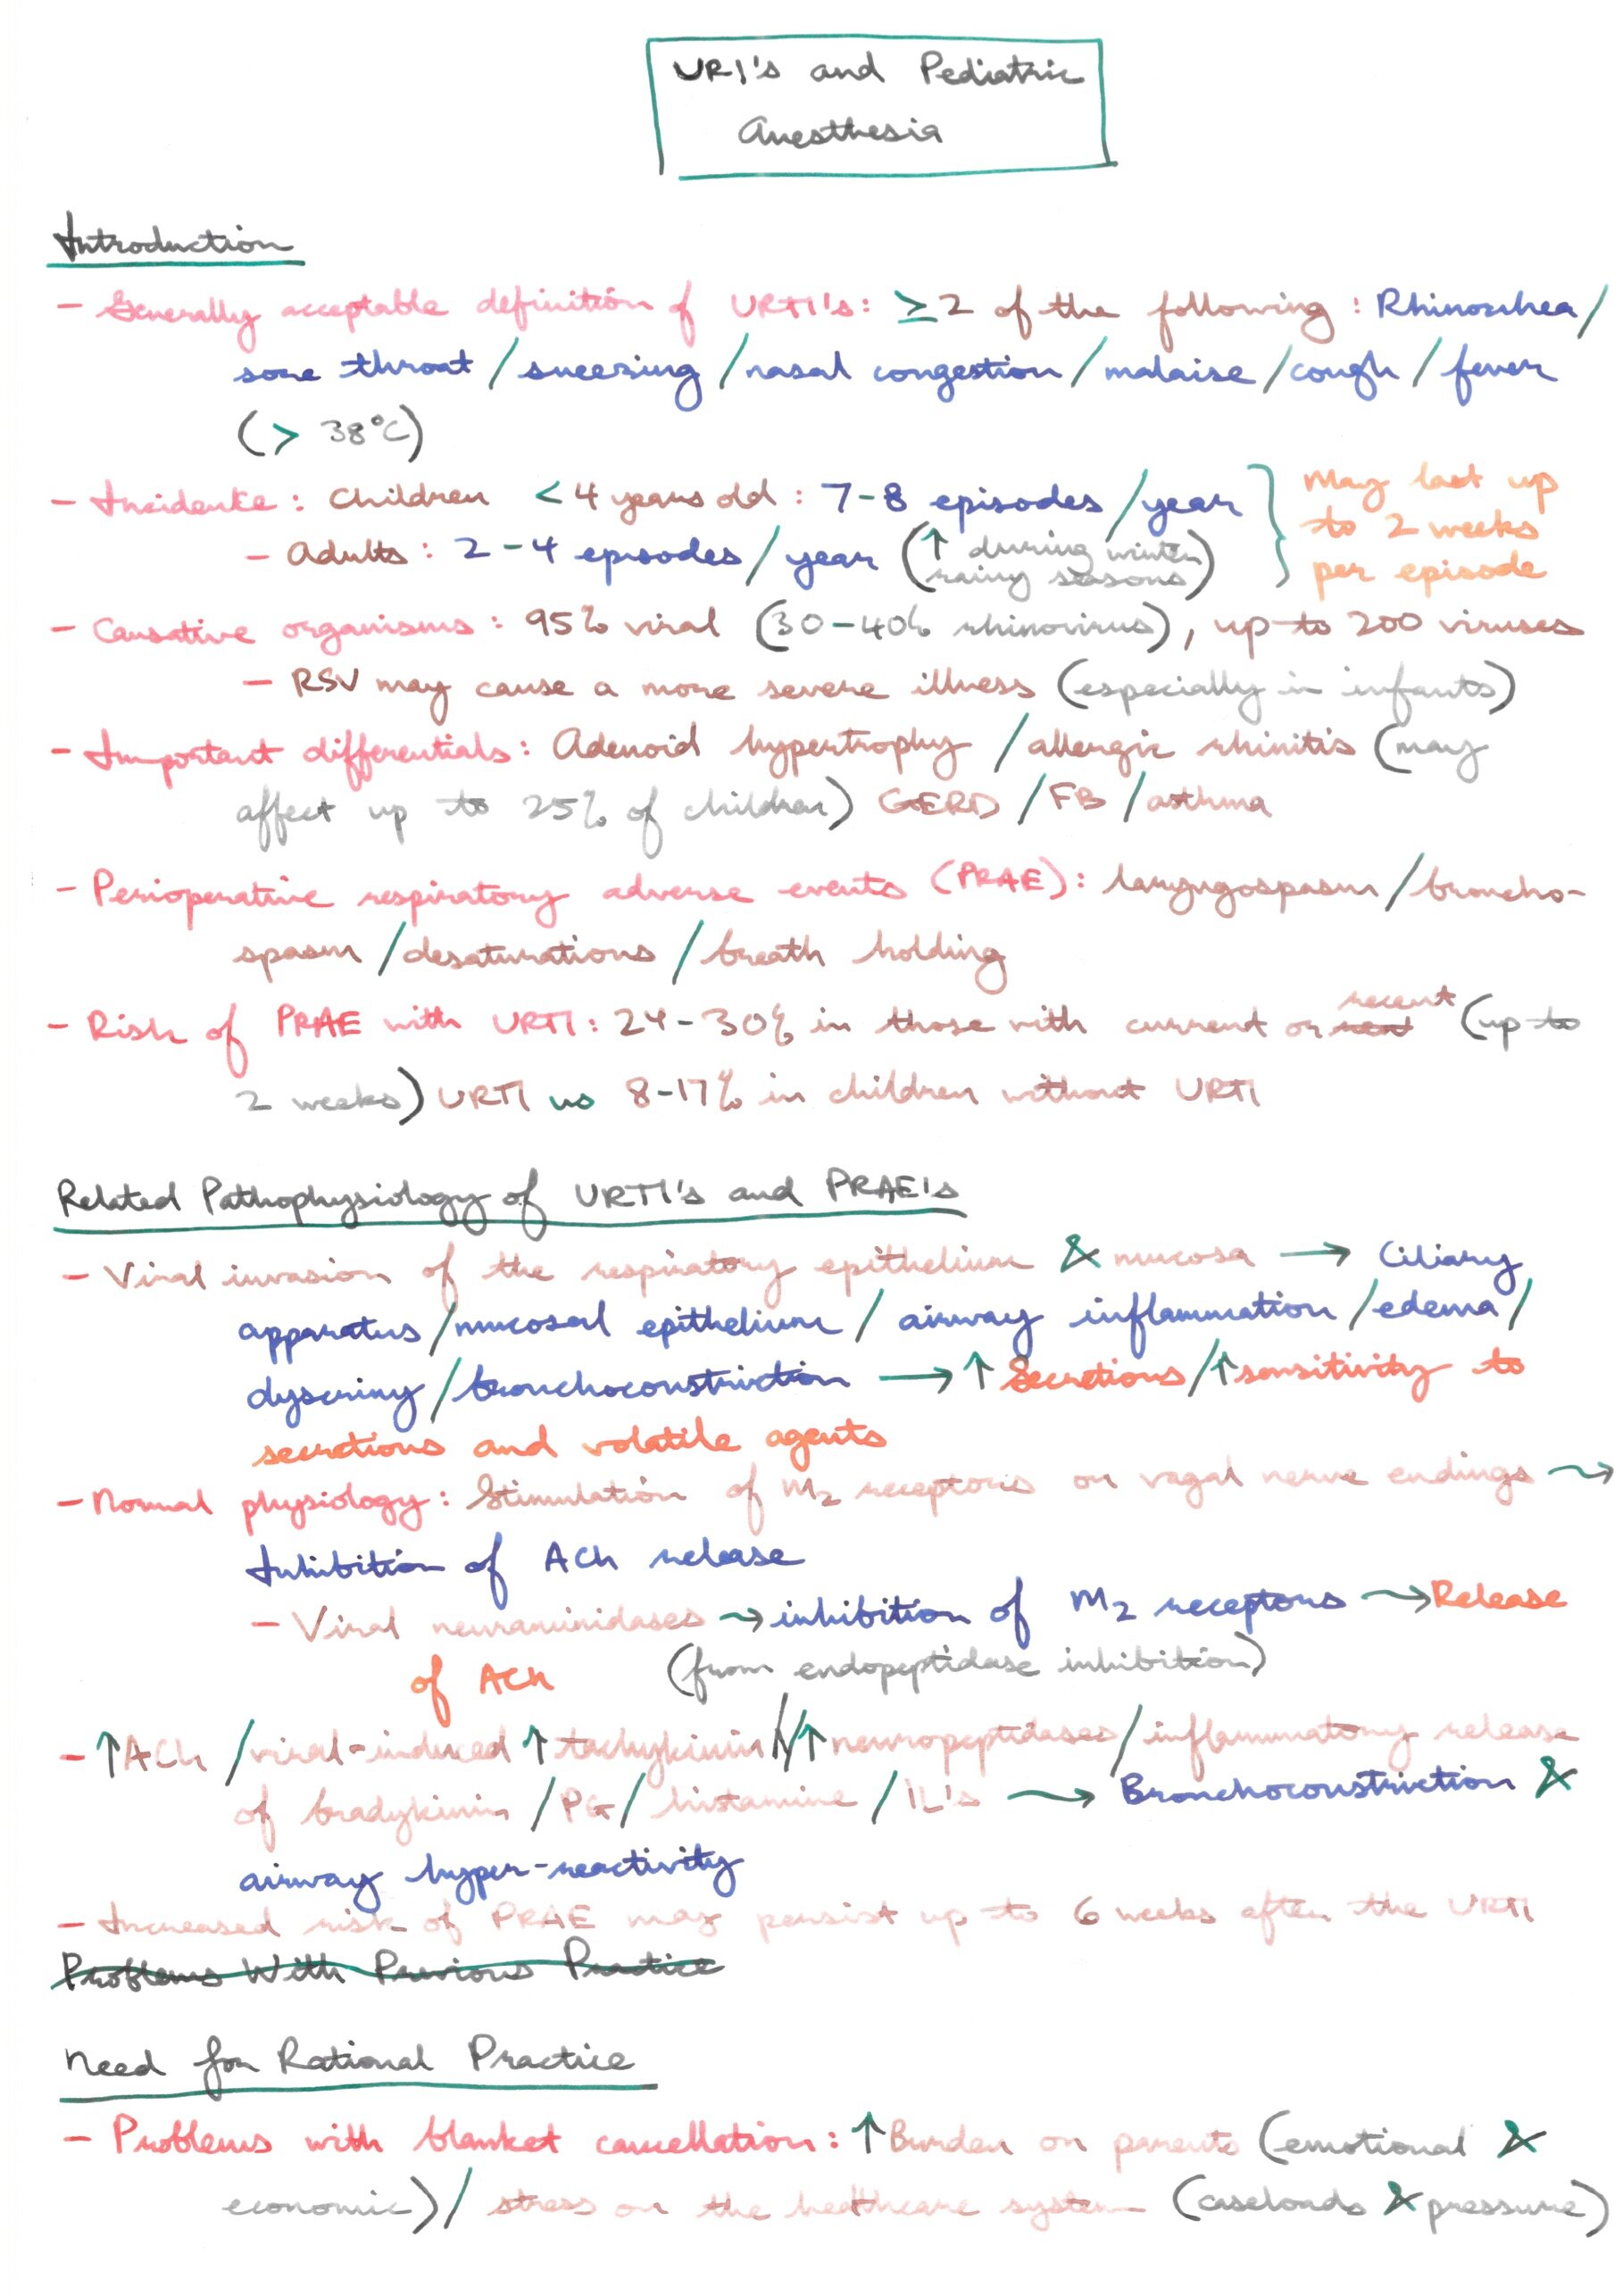 URI's and Pediatric
Anesthesia
Introduction
- Generally acceptable definition of URTI's: ≥2 of the following: Rhinorrhea/
sore throat/sneezing/nasal congestion/malaise/cough/fever
(> 38°C)
- Incidence: Children <4 years old: 7-8 episodes/year
- Adults: 2-4 episodes/year (↑ during winter
rainy seasons)
May last up
to 2 weeks
per episode
- Causative organisms: 95% viral (30-40% rhinovirus), up to 200 viruses
- RSV may cause a more severe illness (especially in infants)
- Important differentials: Adenoid hypertrophy/allergic rhinitis (may
affect up to 25% of children) GERD/FB/asthma
- Perioperative respiratory adverse events (PRAE): laryngospasm/broncho-
spasm/desaturations/breath holding
- Risk of PRAE with URTI: 24-30% in those with current or recent (up to
2 weeks) URTI vs 8-17% in children without URTI
Related Pathophysiology of URTI's and PRAE's
- Viral invasion of the respiratory epithelium & mucosa → Ciliary
apparatus/mucosal epithelium/airway inflammation/edema/
dyscriny/bronchoconstriction → ↑ Secretions/↑sensitivity to
secretions and volatile agents
- Normal physiology: Stimulation of M2 receptors on vagal nerve endings →
Inhibition of ACh release
- Viral neuraminidases → inhibition of M2 receptors → Release
of ACh (from endopeptidase inhibition)
- ↑ACh/viral-induced ↑tachykinin//↑neuropeptidases/inflammatory release
of bradykinin/PG/histamine/IL's → Bronchoconstriction &
airway hyper-reactivity
- Increased risk of PRAE may persist up to 6 weeks after the URTI
Problems With Previous Practice
Need for Rational Practice
- Problems with blanket cancellation: ↑Burden on parents (emotional &
economic)/stress on the healthcare system (caseloads & pressure)